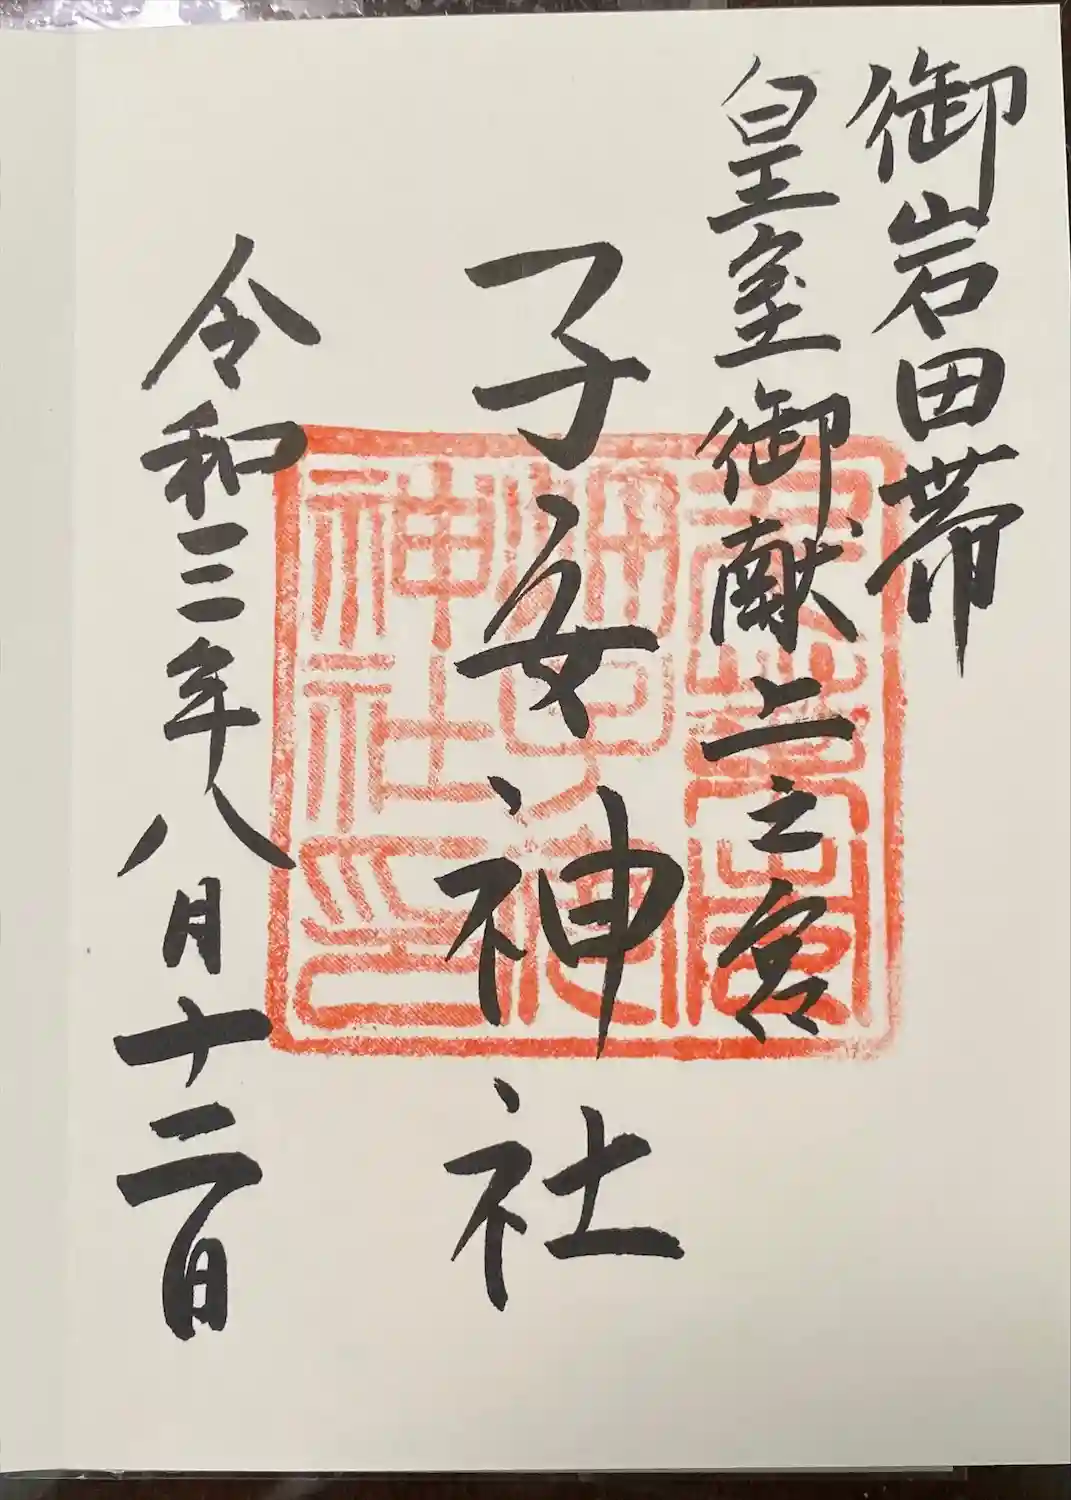 御岩田帯
皇室御献上之宮
子安神社
令和三年八月十二日
神社印